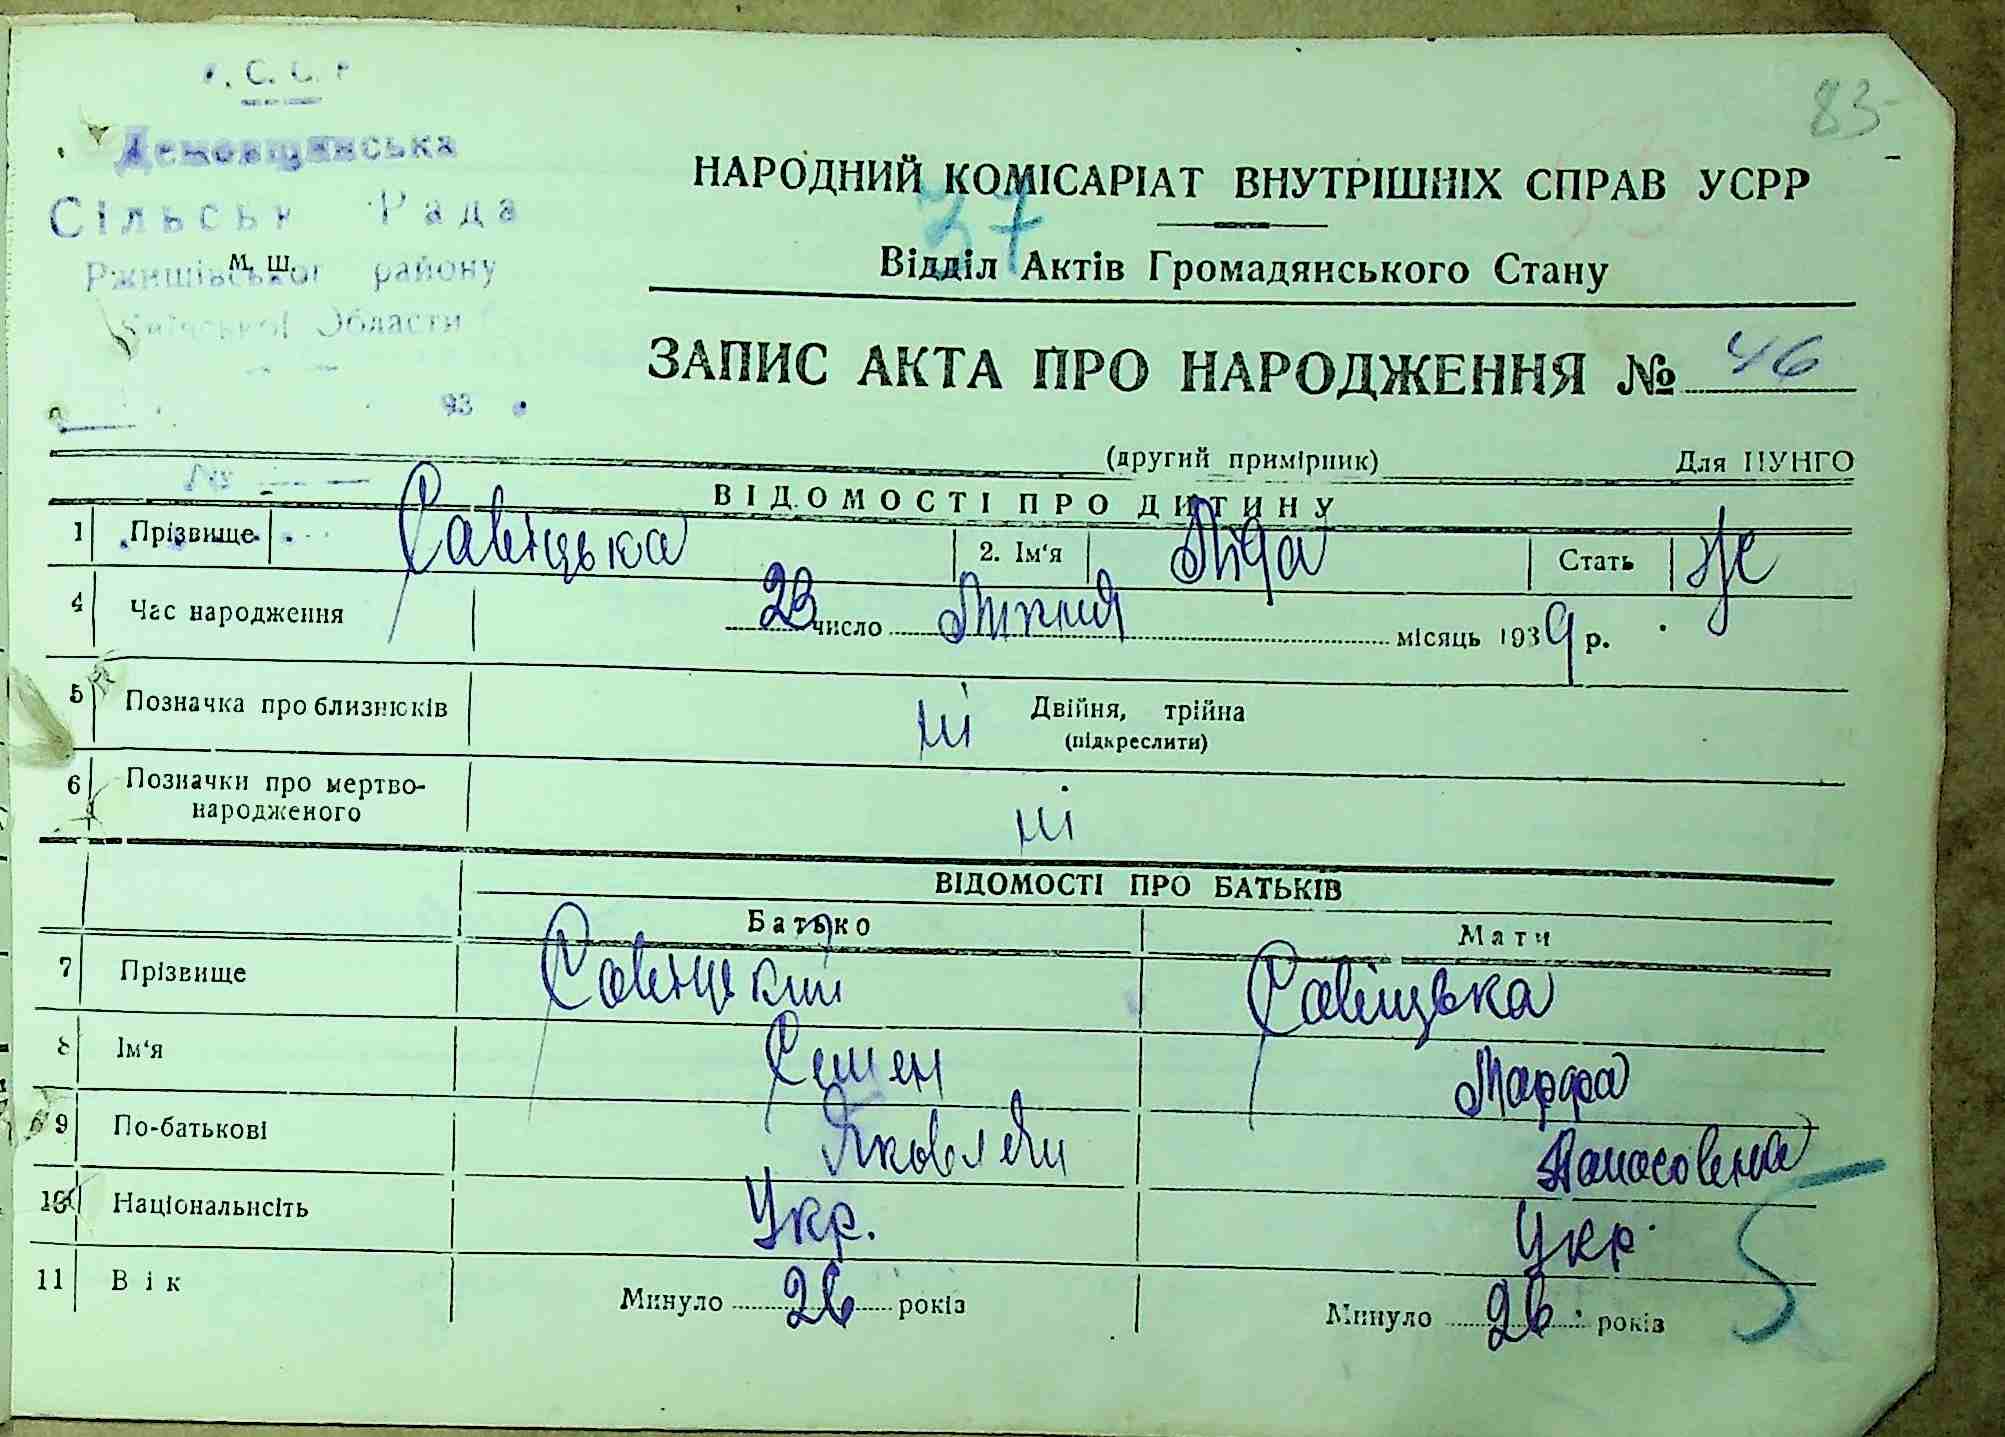 83
Сільськ Рада
М. Ш.
Ржищівської району
Київської Области
93
НАРОДНИЙ КОМІСАРІАТ ВНУТРІШНІХ СПРАВ УСРР
37
Відділ Актів Громадянського Стану
ЗАПИС АКТА ПРО НАРОДЖЕННЯ № 46
(другий примірник) Для ЦУНГО
ВІДОМОСТІ ПРО ДИТИНУ
1 Прізвище Савіцька 2. Ім'я Ліда Стать Ж
4 Час народження 23 число Липня місяць 1939 р.
5 Позначка про близнюсків ні Двійня, трійна
(підкреслити)
6 Позначки про мертво-
народженого ні
ВІДОМОСТІ ПРО БАТЬКІВ
Батько Мати
7 Прізвище Савіцький Савіцька
8 Ім'я Семен Марфа
9 По-батькові Панасовна
10 Національнсіть Укр. Укр.
11 Вік Минуло 26 років Минуло 26 років
5